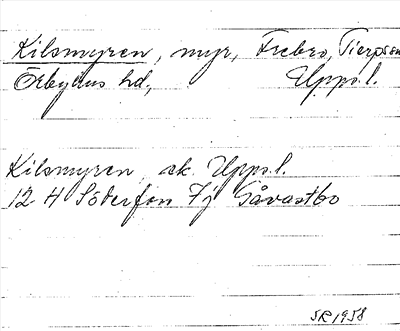 Kilsmyren, myr, Frebro, Tierps sn
Örbyhus hd, Upps. l.
Kilsmyren, ek. Upps. l.
12 H Söderfors 7j Gåvastbo
SR 1958